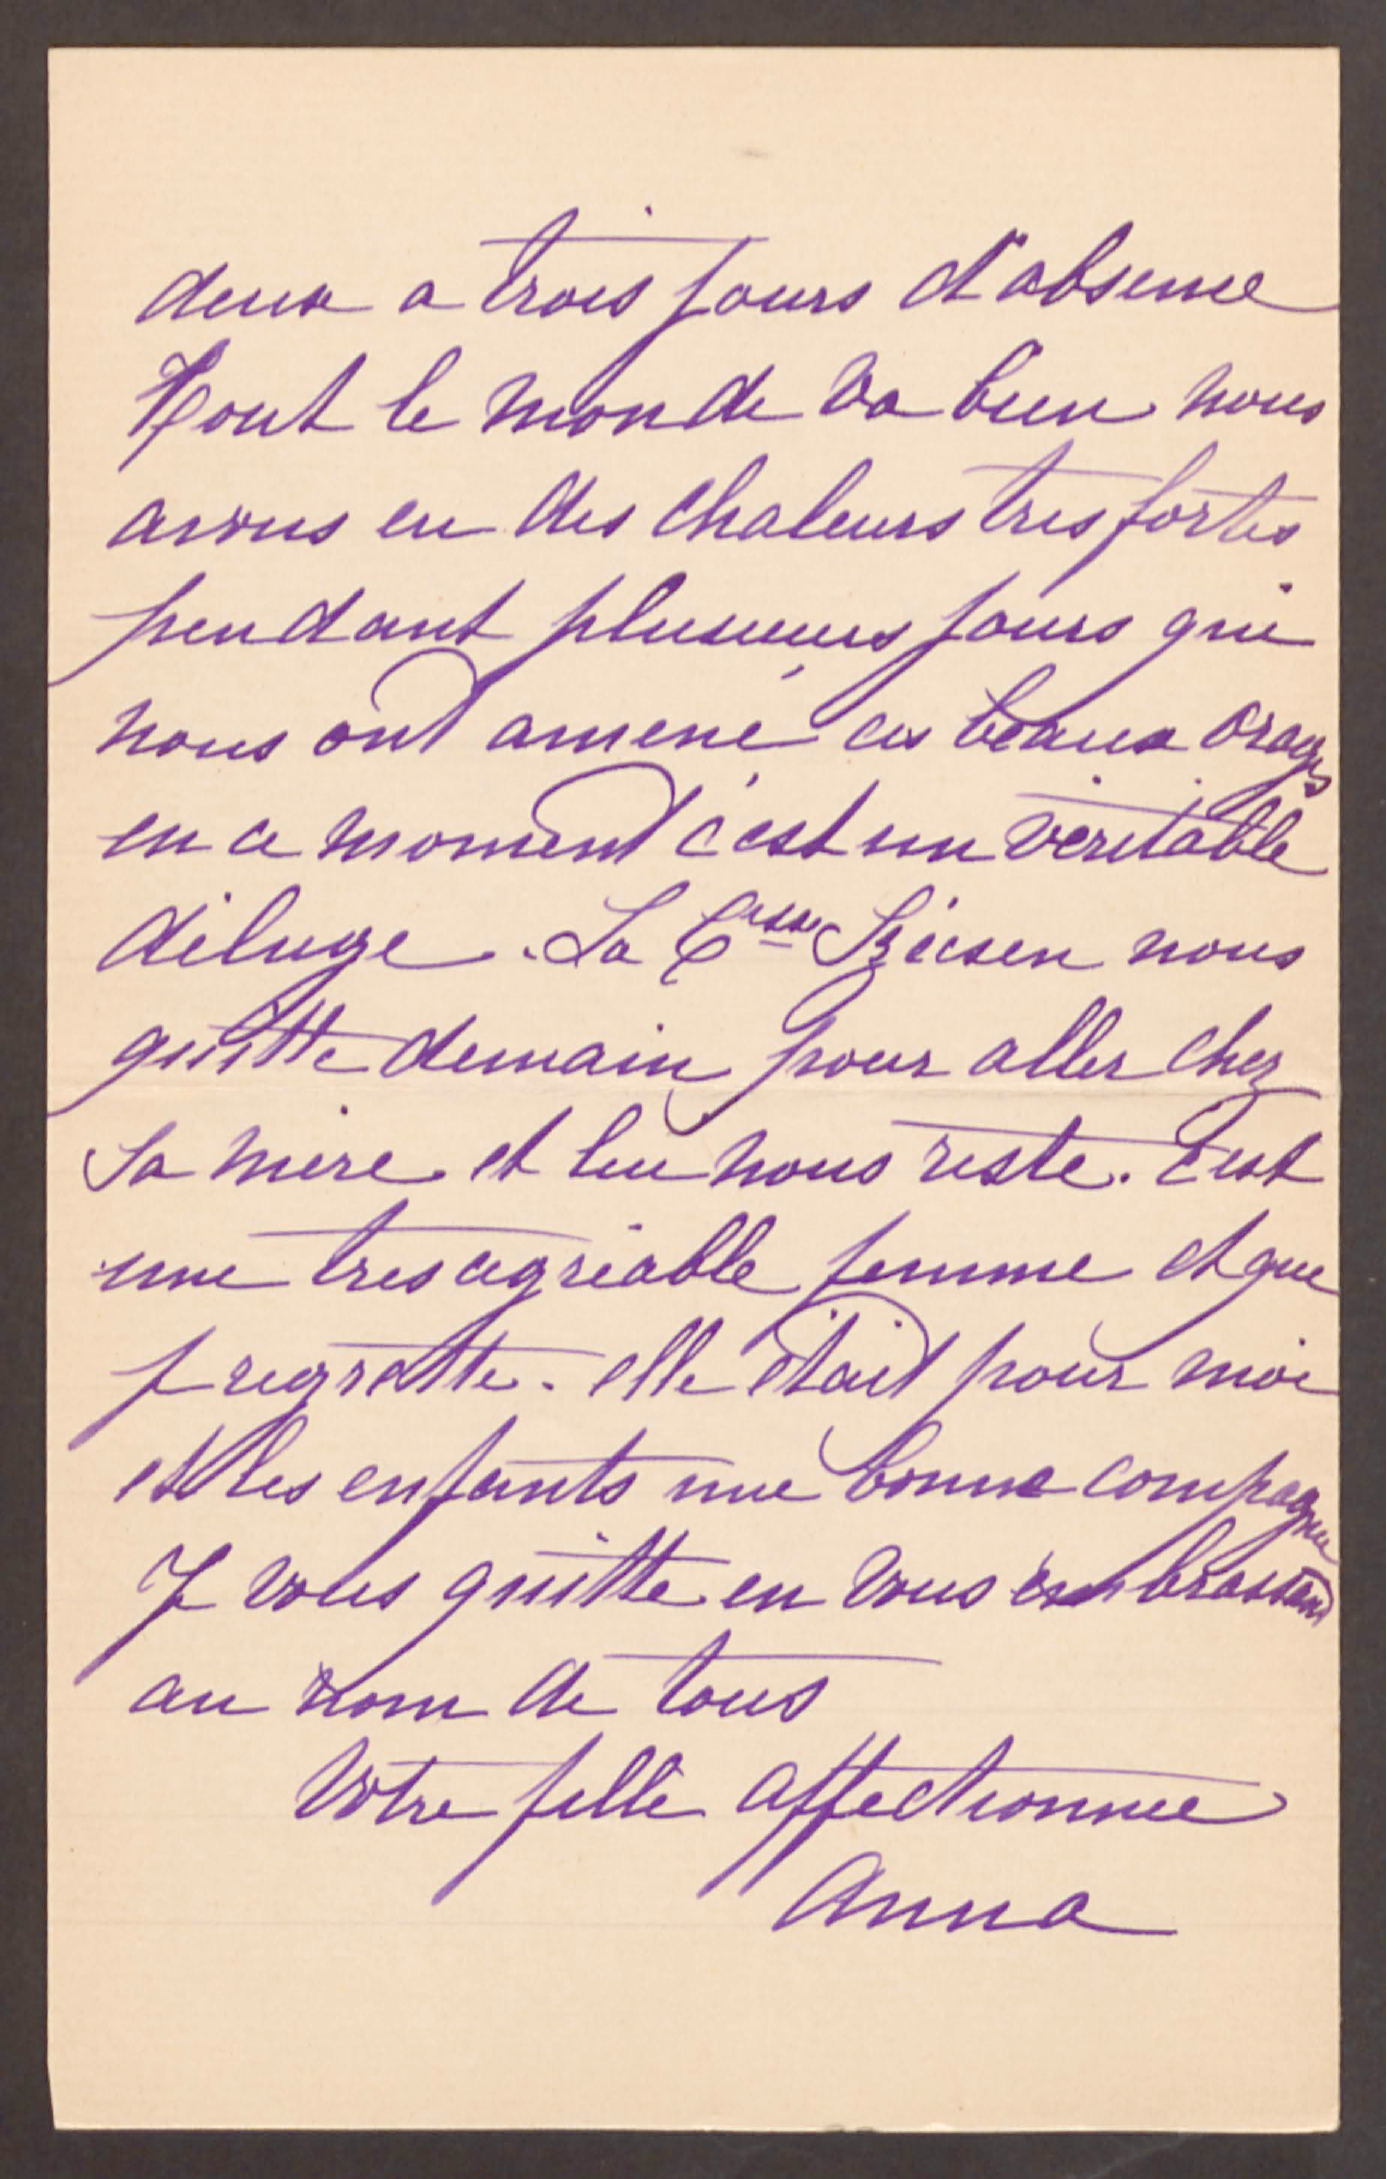 deux a trois jours d'absence
Tout le monde va bien nous
avons eu des chaleurs tres fortes
pendant plusieurs jours qui
nous ont amené ces beaux orages
en ce moment c'est un véritable
déluge. La Csse Szécsen nous
quitte demain pour aller chez
sa mère et lui nous reste. C'est
une tres agréable femme et que
je regrette. elle était pour moi
et les enfants une bonne compagne
Je vous quitte en vous embrassant
au nom de tous
Votre fille affectionnee
Anna